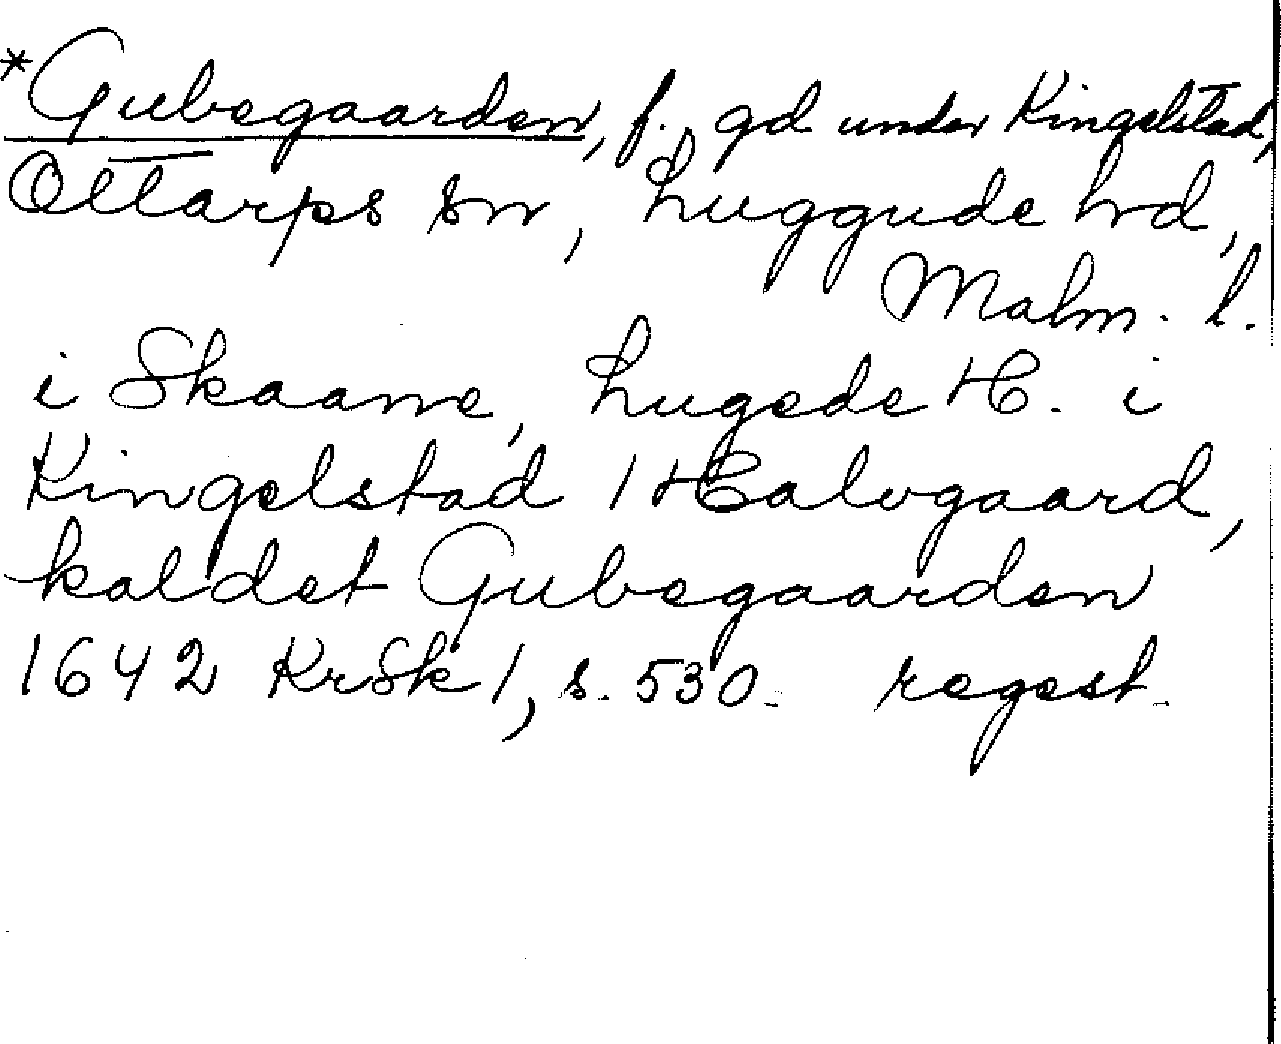 *Gubegaarden, f. gd under Kingelstad,
Ottarps sn, Luggude hd,
Malm. l.
i Skaane, Lugede H. i
Kingelstad 1 Halvgaard,
kaldet Gubegaarden
1642 KrSk 1, s. 530. regest.